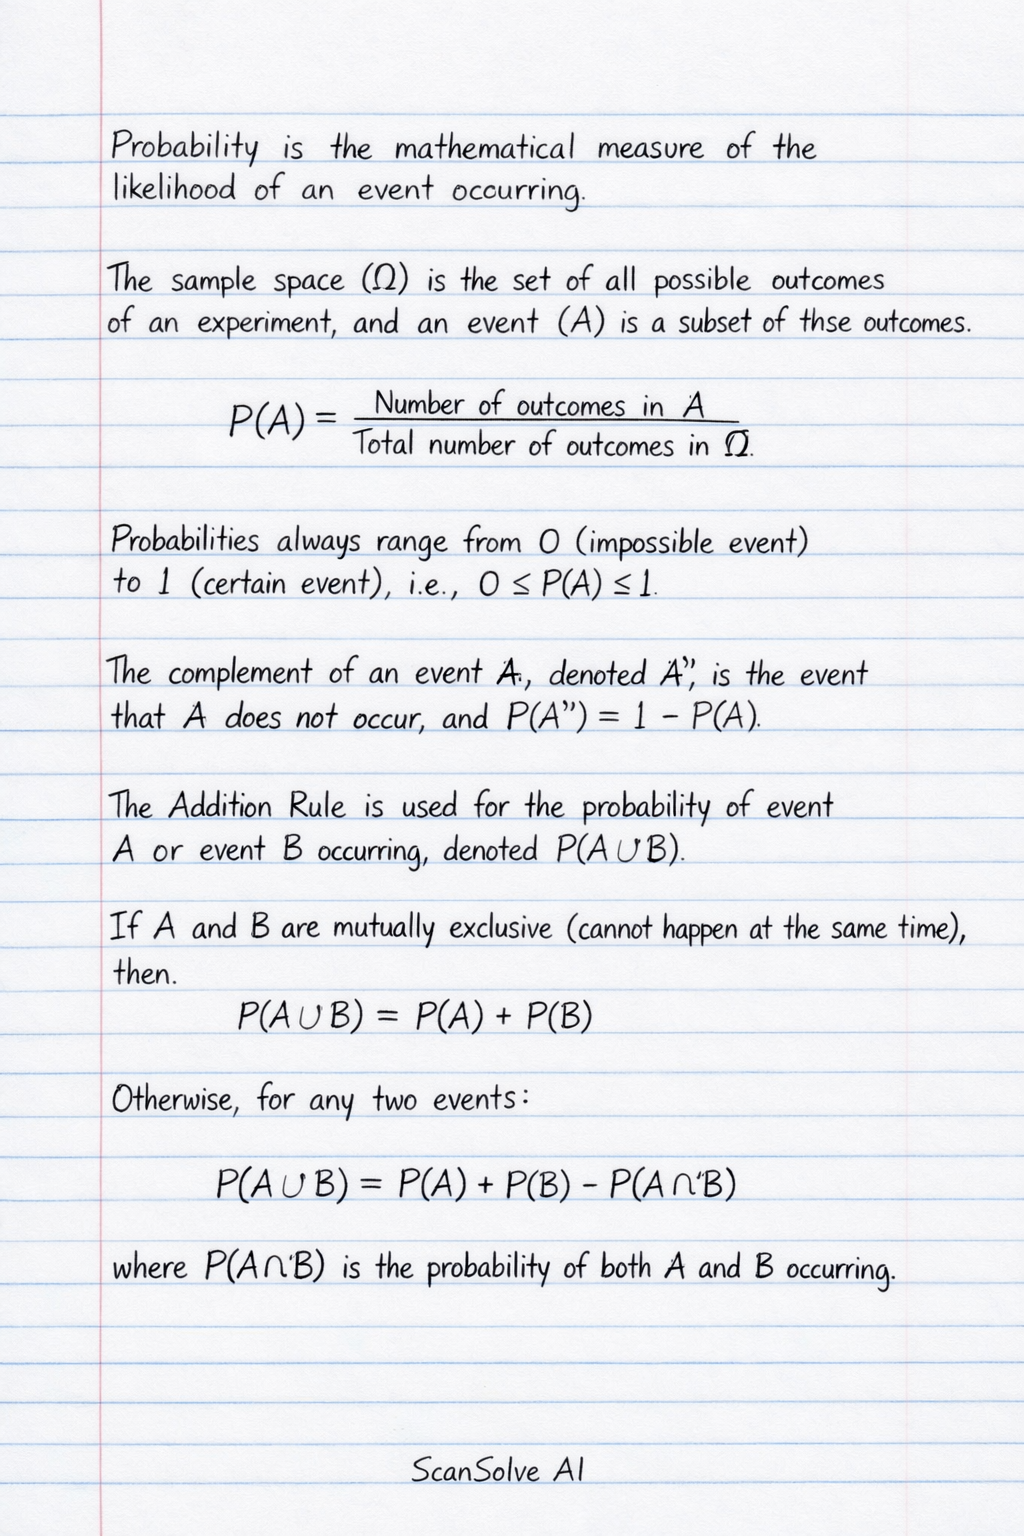 Probability is the mathematical measure of the
likelihood of an event occurring.
The sample space (Ω) is the set of all possible outcomes
of an experiment, and an event (A) is a subset of thse outcomes.
P(A) = Number of outcomes in A
Total number of outcomes in Ω.
Probabilities always range from 0 (impossible event)
to 1 (certain event), i.e., 0 ≤ P(A) ≤ 1.
The complement of an event A., denoted A”, is the event
that A does not occur, and P(A”) = 1 − P(A).
The Addition Rule is used for the probability of event
A or event B occurring, denoted P(A ∪ B).
If A and B are mutually exclusive (cannot happen at the same time),
then.
P(A ∪ B) = P(A) + P(B)
Otherwise, for any two events:
P(A ∪ B) = P(A) + P(B) − P(A ∩ B)
where P(A ∩ B) is the probability of both A and B occurring.
ScanSolve AI